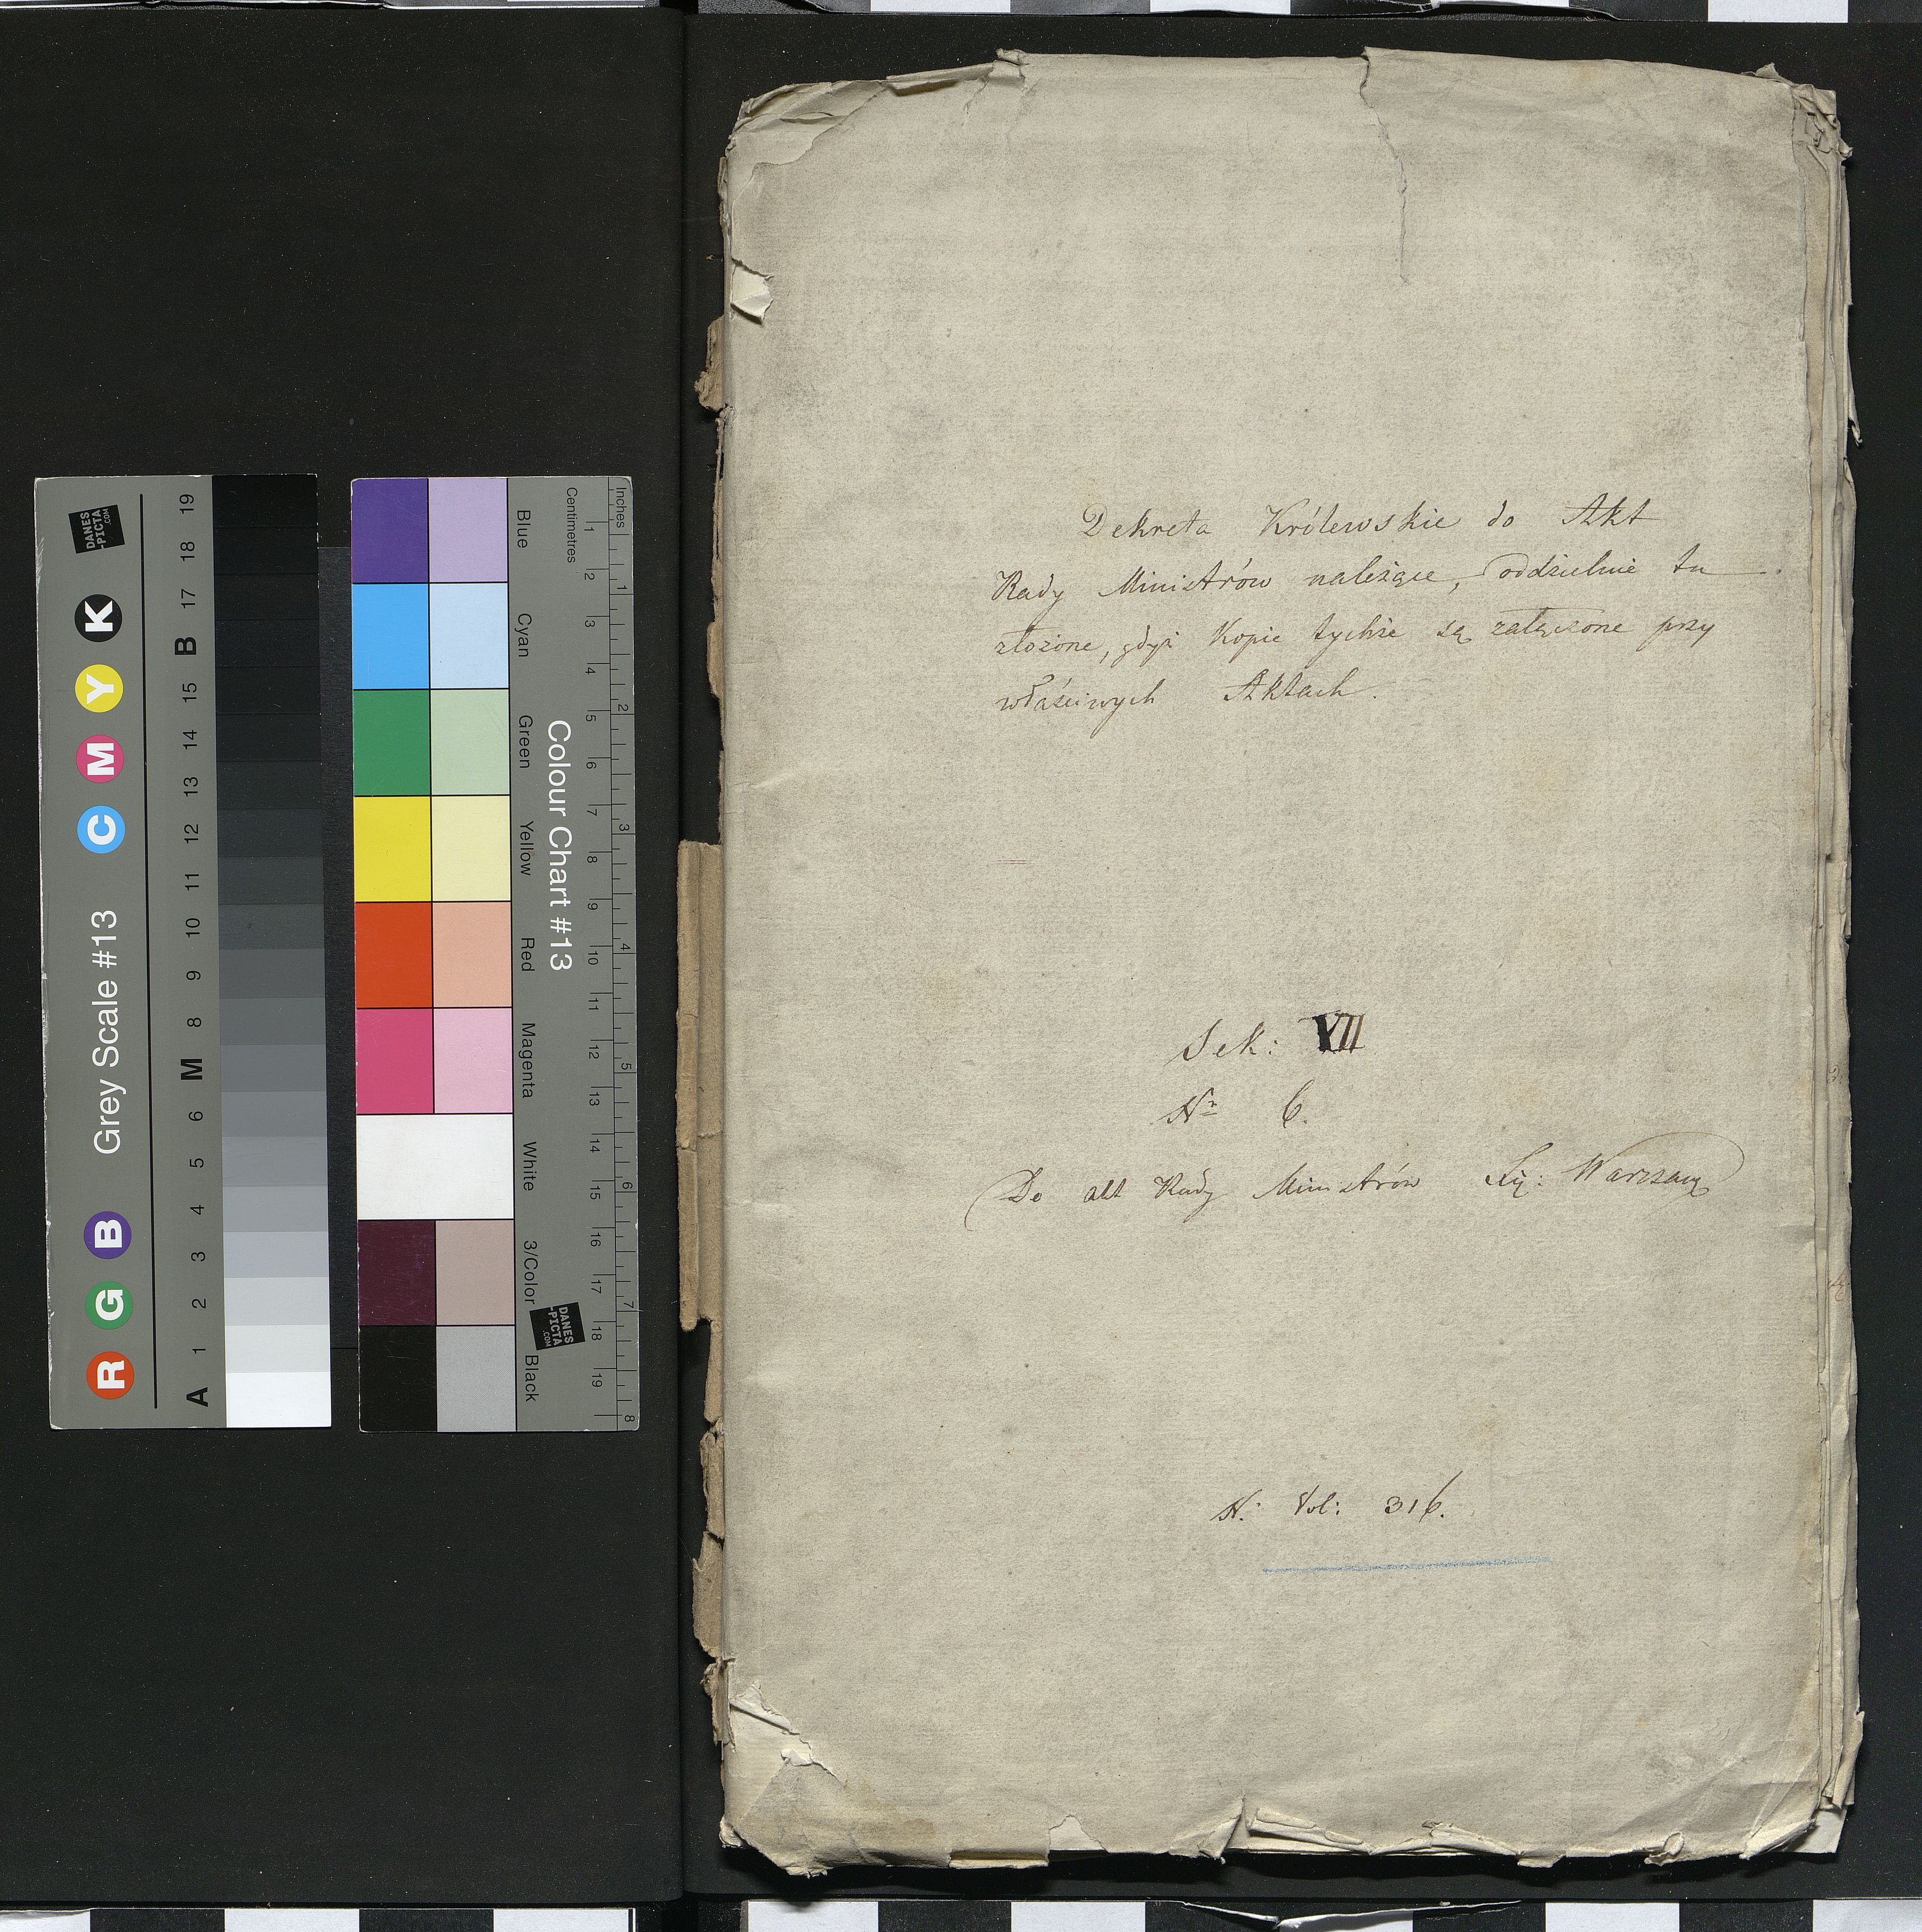 Dekreta Królewskie do Akt
Rady Ministrów należące, oddzielnie tu
złożone, gdyż Kopie tychże są załączone przy
właściwych Aktach.
Sek: VII
Nr 6.
Do akt Rady Ministrów Xię: Warszaw
N: Vol: 316.
Grey Scale #13
R G B C M Y K
A 1 2 3 4 5 6 M 8 9 10 11 12 13 14 15 B 17 18 19
DANES
-PICTA
.COM
Colour Chart #13
Blue Cyan Green Yellow Red Magenta White 3/Color Black
Centimetres 1 2 3 4 5 6 7 8 9 10 11 12 13 14 15 16 17 18 19
Inches 1 2 3 4 5 6 7 8
DANES
-PICTA
.COM